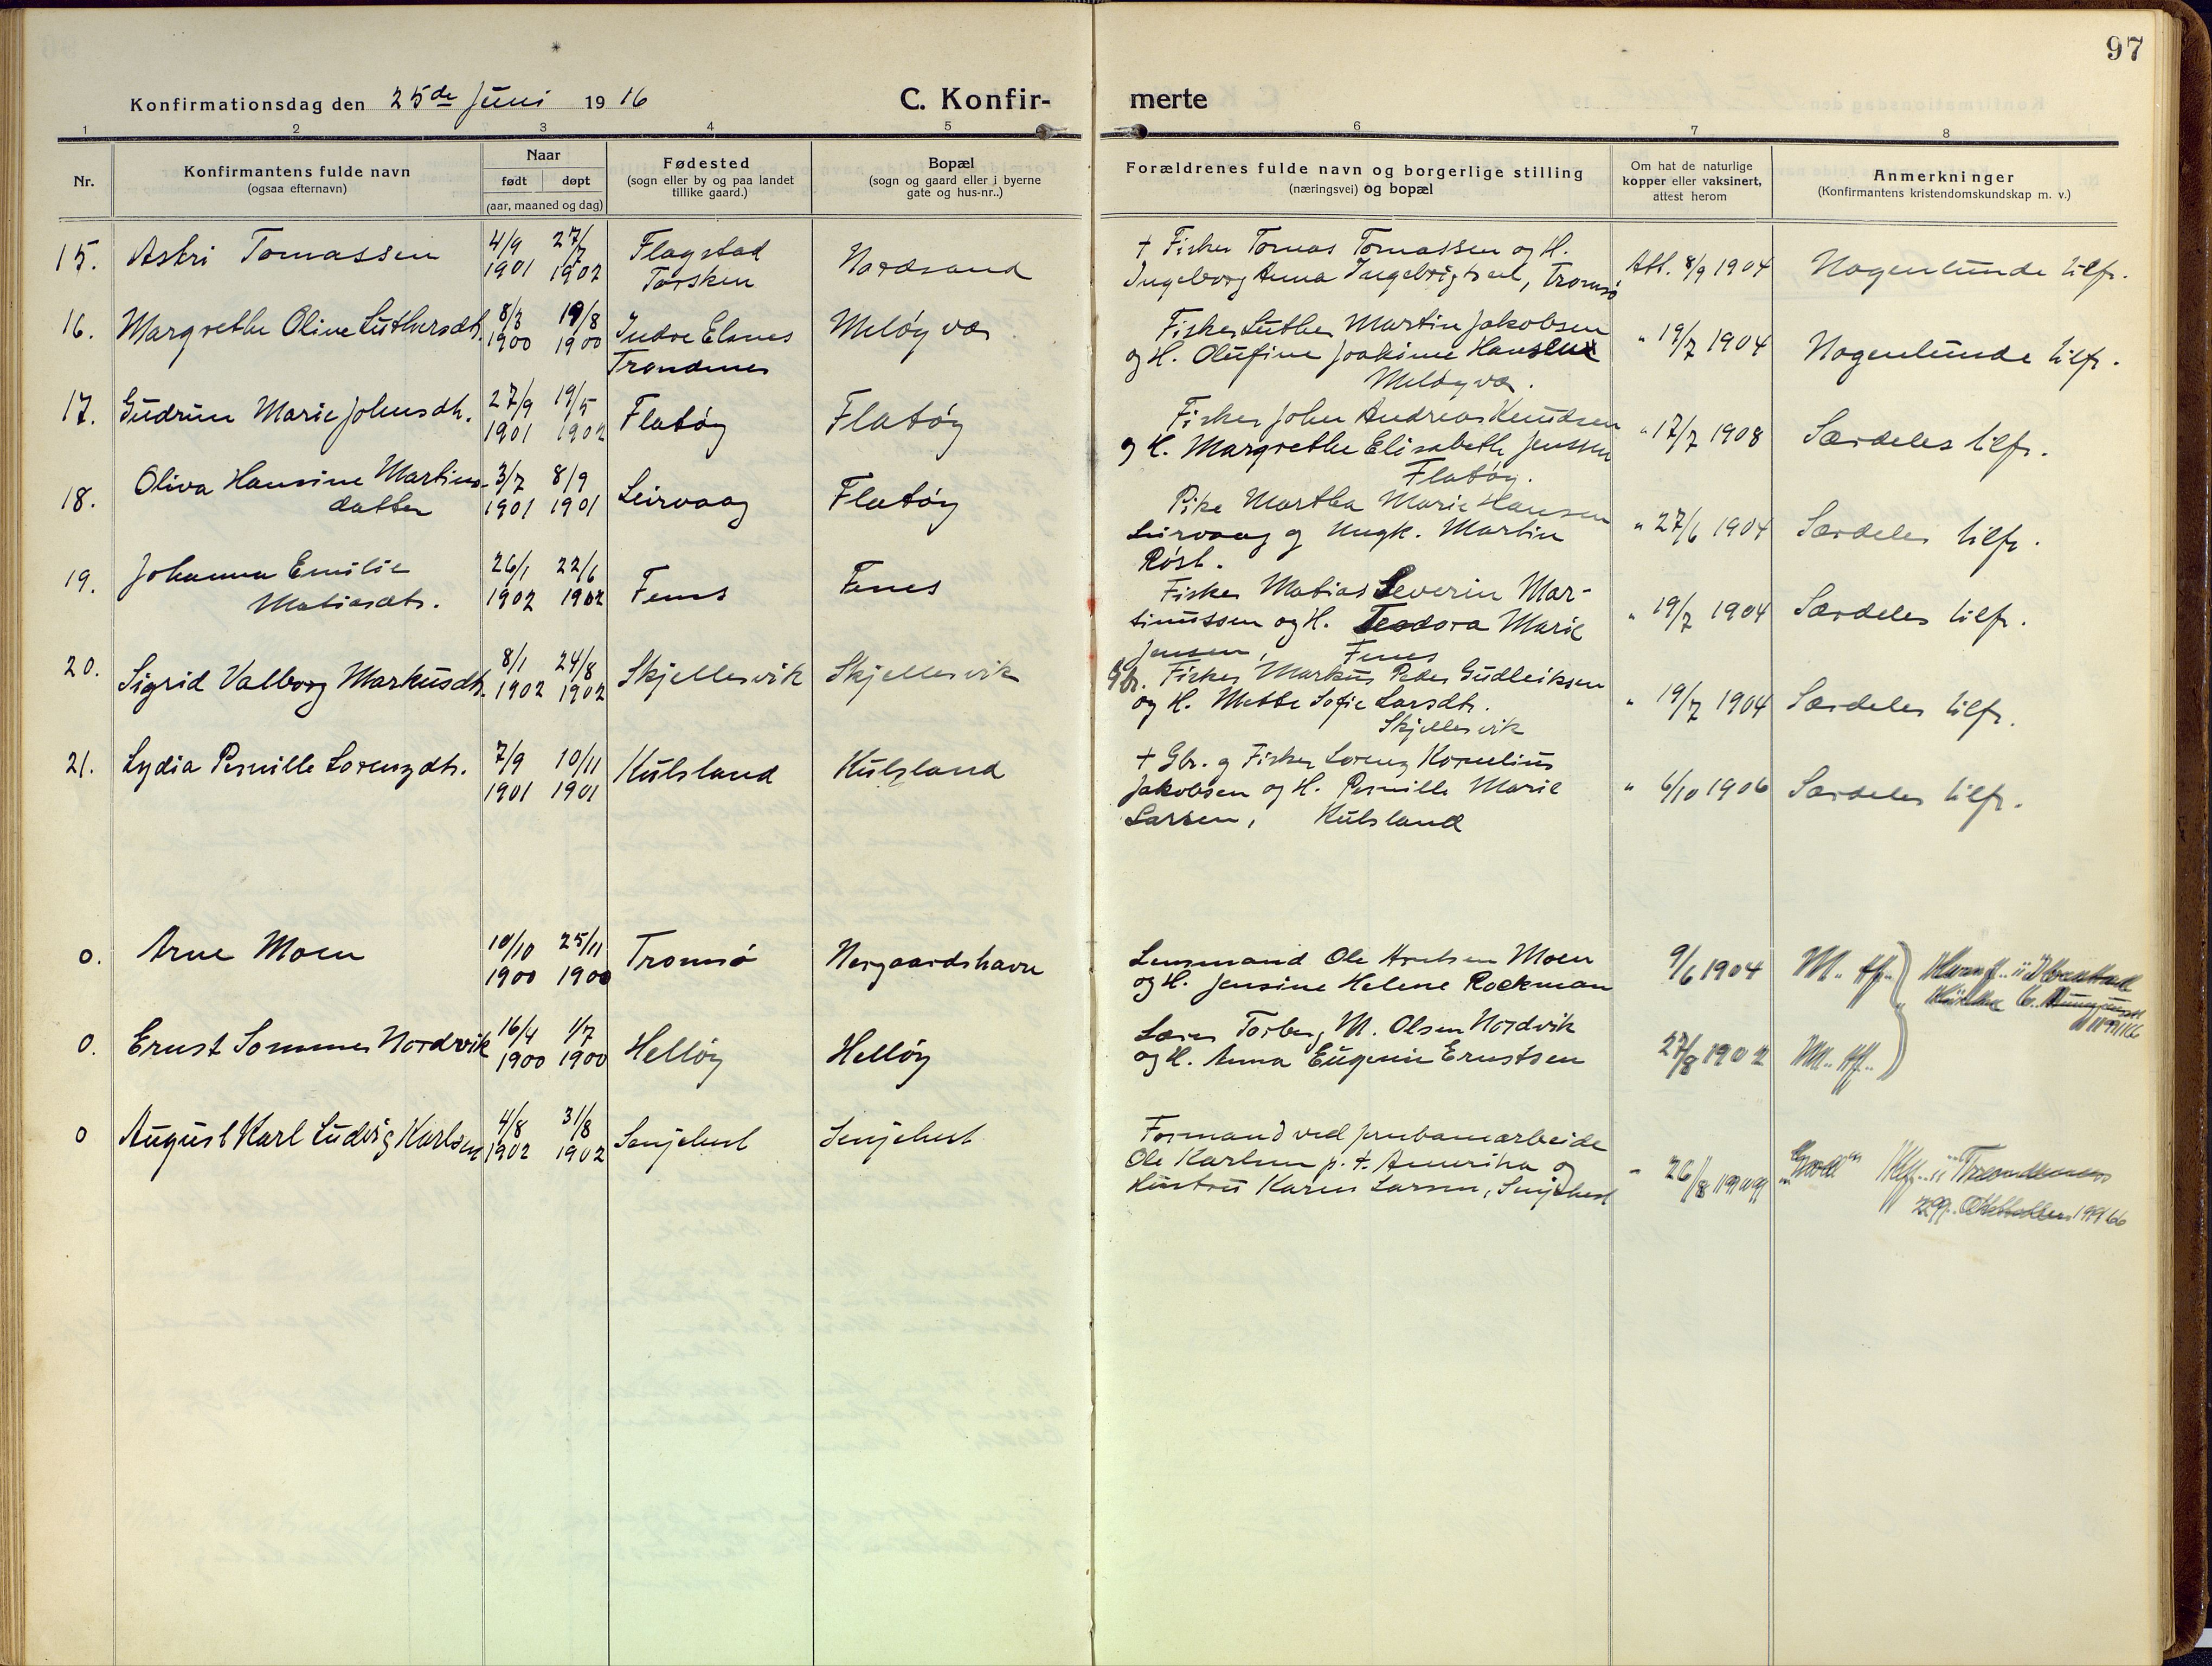 97
Konfirmationsdag den 25de Juni 1916
C. Konfirmerte
1 2 3 4 5 6 7 8
Nr.
Konfirmantens fulde navn
(ogsaa efternavn)
Naar
født døpt
(aar, maaned og dag)
Fødested
(sogn eller by og paa landet
tillike gaard.)
Bopæl
(sogn og gaard eller i byerne
gate og hus-nr..)
Forældrenes fulde navn og borgerlige stilling
(næringsvei) og bopæl
Om hat de naturlige
kopper eller vaksinert,
attest herom
Anmerkninger
(Konfirmantens kristendomskundskap m. v.)
15. Astri Tomassen
4/9 1901 27/7 1902
Flagstad
Torsken
Nordsand
+ Fisker Tomas Tomassen og H.
Ingeborg Anna Ingebrigtsen, Tromsø
Att. 8/9 1904
Nogenlunde tilfr.
16. Margrethe Oline Luthersdtr.
8/3 1900 19/8 1900
Indre Elnes
Trondenes
Meløyvær
Fisker Luther Martin Jakobsen
og H. Olufine Joakime Hansen
Meløyvær.
" 19/7 1904
Nogenlunde tilfr.
17. Gudrun Marie Johnsdtr.
27/9 1901 19/5 1902
Flatøy
Flatøy
Fisker John Andreas Knudsen
og H. Margrethe Elisabeth Jenssen
Flatøy.
" 17/7 1908
Særdeles tilfr.
18. Oliva Hansine Martins-
datter
3/7 1901 8/9 1901
Leirvaag
Flatøy
Pike Martha Marie Hansen
Leirvaag og Ungk. Martin
Røst.
" 27/6 1904
Særdeles tilfr.
19. Johanna Emilie
Matiasdtr.
26/1 1902 22/6 1902
Fenes
Fenes
Fisker Matias Severin Mar-
tinussen og H. Teodora Marie
Jensen, Fenes
" 19/7 1904
Særdeles tilfr.
20. Sigrid Valborg Markusdtr.
8/1 1902 24/8 1902
Skjellesvik
Skjellesvik
Gbr. Fisker Markus Peder Gudleiksen
og H. Mette Sofie Larsdtr.
Skjellesvik
" 19/7 1904
Særdeles tilfr.
21. Lydia Pernille Lorenzdtr.
7/9 1901 10/11 1901
Kulsland
Kulsland
+ Gbr. og Fisker Lorenz Kornelius
Jakobsen og H. Pernille Marie
Larsen, Kulsland
" 6/10 1906
Særdeles tilfr.
0. Arne Moen
10/10 1900 25/11 1900
Tromsø
Norgaardshavn
Lensmand Ole Moen
og H. Jensine Helene Rockman
9/6 1904
M. tf.
0. Ernst Sommer Nordvik
16/4 1900 1/7 1900
Helløy
Helløy
Lærer Torberg M. Olsen Nordvik
og H. Anna Eugenie Ernstsen
27/8 1902
M. tf.
0 August Karl Ludvig Karlsen
4/8 1902 31/8 1902
Senjehest
Senjehest
Formand ved jernbanearbeide
Ole Karlsen p. t. Amerika og
Hustru Karen Larsen, Senjehest
Trondenes